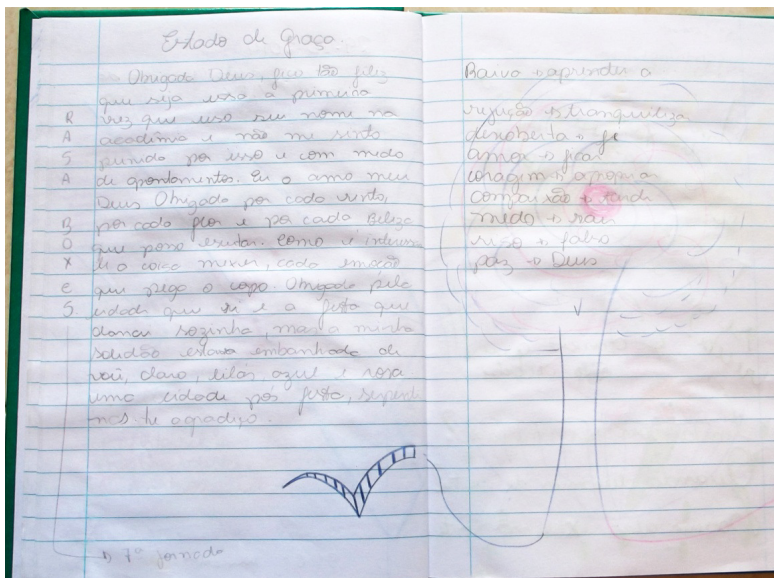 Estado de Graça.
Obrigada Deus, fico tão feliz
que seja essa a primeira
vez que uso seu nome na
academia e não me sinto
punida por isso e com medo
de apontamentos. Eu o amo meu
Deus Obrigada por cada vento,
por cada flor e por cada Beleza
que posso escutar. Como é
a coisa mover, cada emoção
que pega o corpo. Obrigada pela
cidade que vi e a festa que
dancei sozinha, mas a minha
solidão estava embanhada de
véu, claro, lilás, azul e rosa
uma cidade pós festa,
te agradeço.
R
A
S
A
B
O
X
E
S
7ª jornada
Barvo → aprender a
rejeição → tranquiliza
descoberta → fé
amor → ficar
coragem → apropria
comparação →
medo →
riso → falso
paz → Deus